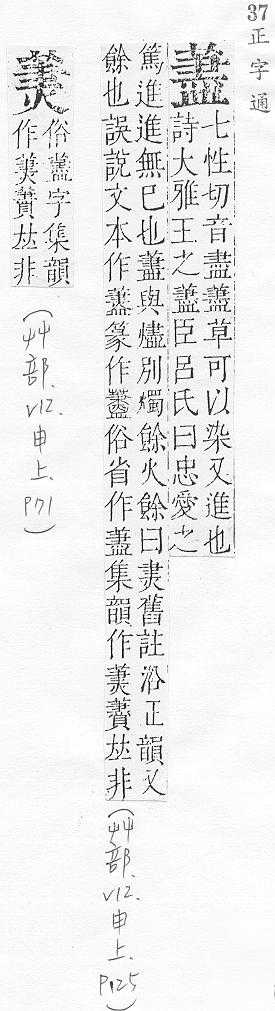 37 正字通
藎 七性切音盡藎草可以染又進也
詩大雅王之藎臣呂氏曰忠愛之
篤進進無已也藎與燼別燭餘火餘曰㶳舊註沿正韻又
餘也誤說文本作藎篆作藎俗省作藎集韻作䕭賮𠀤非
(艸部.v12.申上.P125)
俗藎字集韻
作賮𠀤非
(艸部.v12.申上.P71)